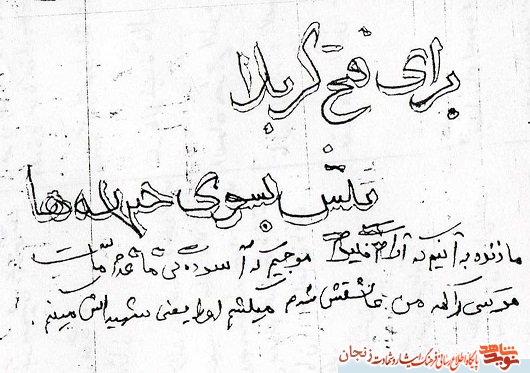 برای فتح کربلا
پیش بسوی جبهه ها
ما زنده به آنیم که آرام نگیریم موجیم که آسودگی ما عدم ماست
هر کسی را که من عاشقش شدم میکشم او را یعنی شهیدش میکنم .
نوید شاهد پایگاه اطلاع رسانی فرهنگ ایثار و شهادت زنجان